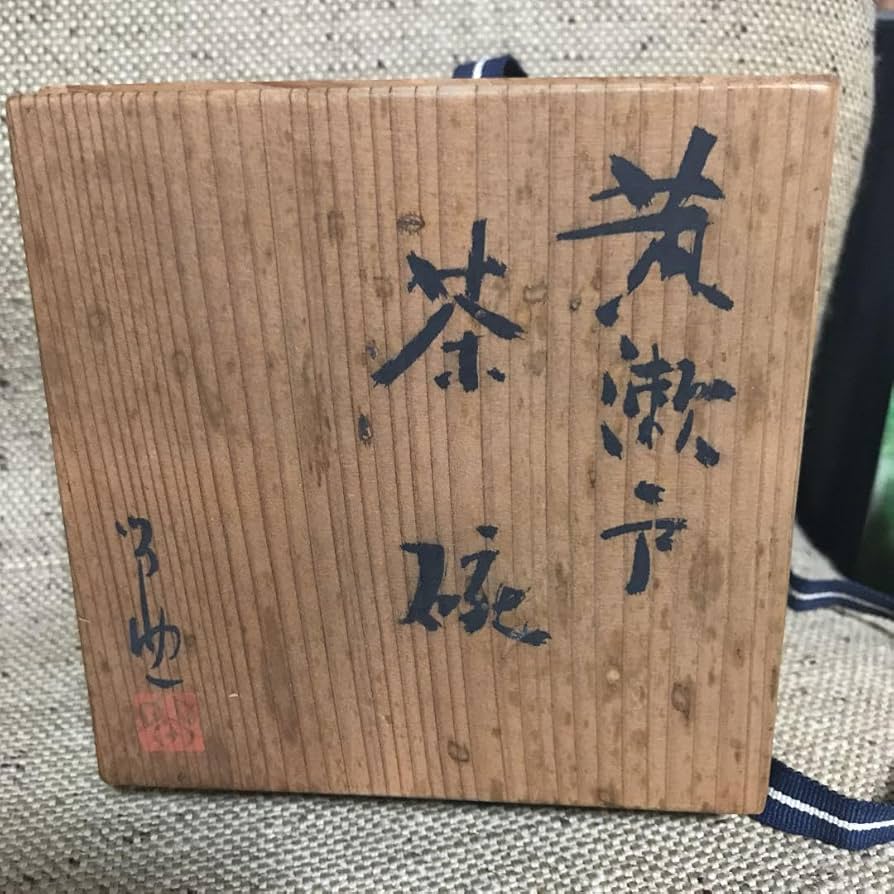 黄瀬戸
茶碗